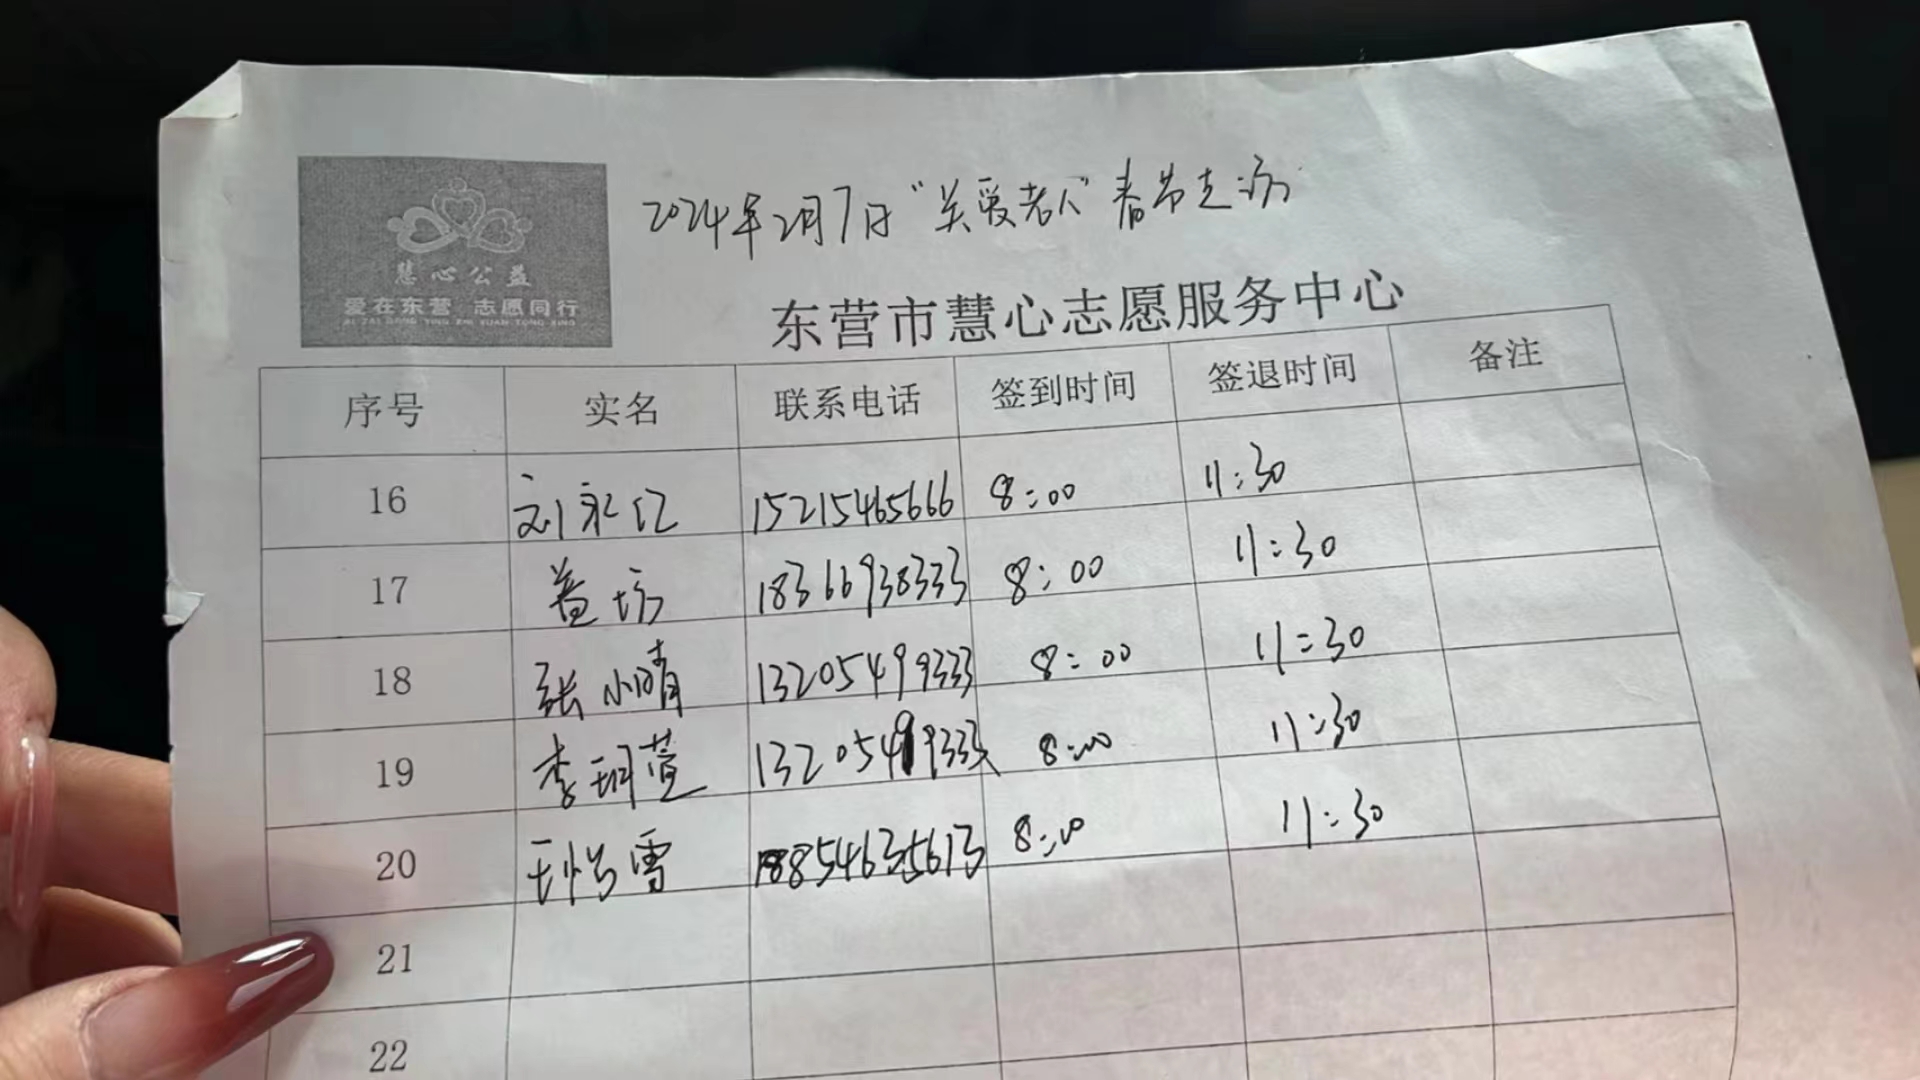 2024年2月7日"关爱老人"春节走访
慧心公益
爱在东营 志愿同行
AI ZAI DONG YING ZHI YUAN TONG XING
东营市慧心志愿服务中心
序号 实名 联系电话 签到时间 签退时间 备注
16 刘永江 15215465666 8:00 11:30
17 18366938333 8:00 11:30
18 张小晴 13205499333 8:00 11:30
19 李玥萱 13205499333 8:00 11:30
20 王怡雪 18854635613 8:00 11:30
21
22